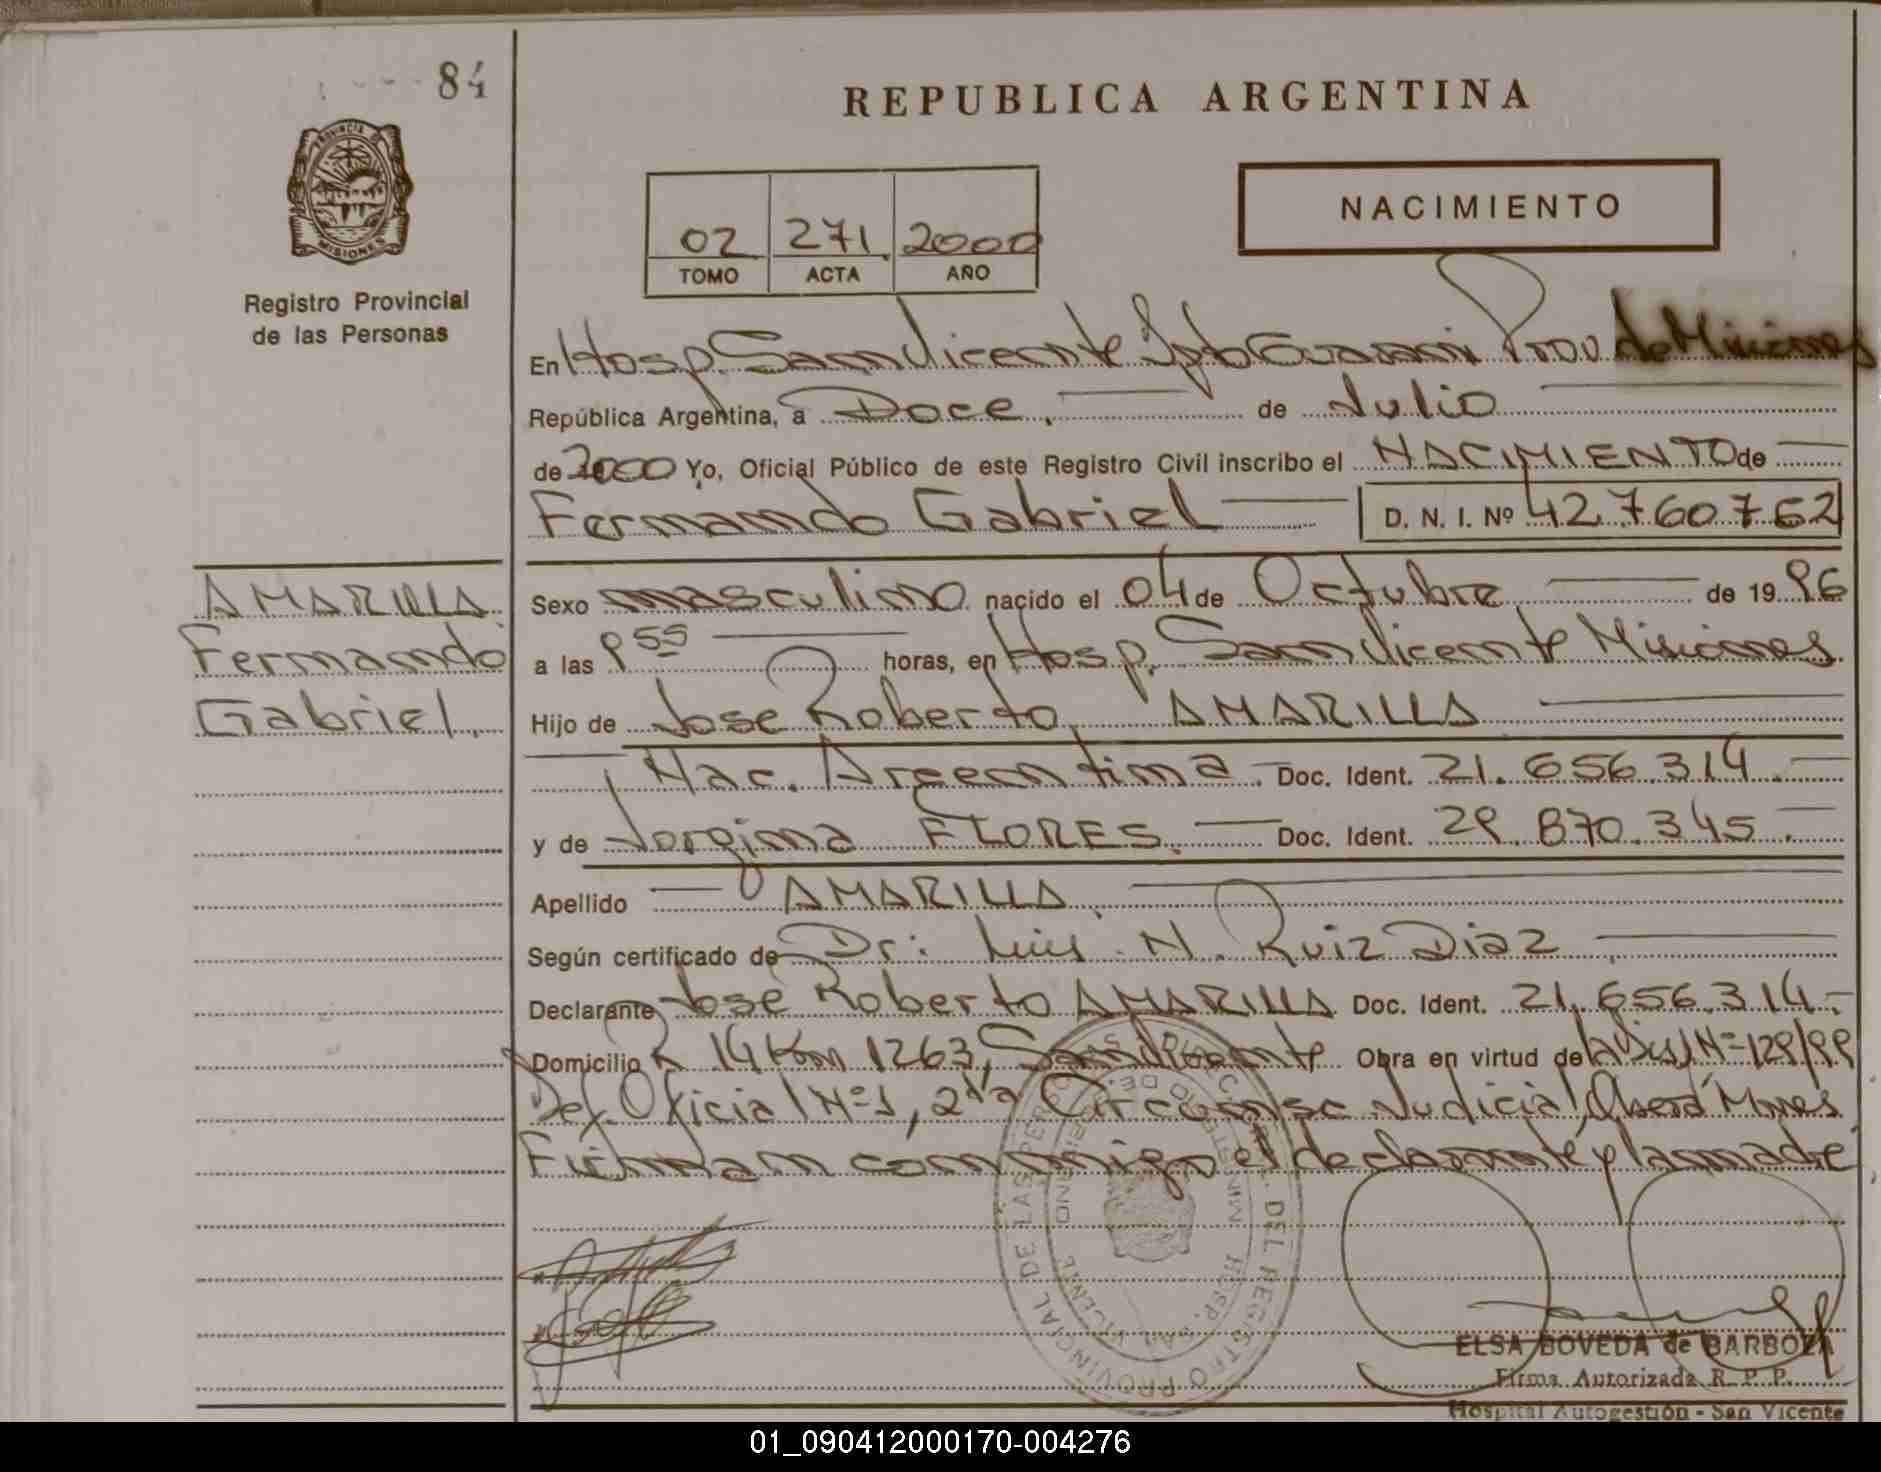 84
REPUBLICA ARGENTINA
PROVINCIA DE MISIONES
Registro Provincial
de las Personas
02 271 2000
TOMO ACTA AÑO
NACIMIENTO
En Hosp. San Vicente Dpto Guarani Prov de Misiones
República Argentina, a Doce de Julio
de 2000 Yo, Oficial Público de este Registro Civil inscribo el NACIMIENTO de
Fernando Gabriel D. N. I. Nº 42.760.762
AMARILLA
Fernando
Gabriel.
Sexo masculino nacido el 04 de Octubre de 19 96
a las 9 55 horas, en Hosp. San Vicente Misiones
Hijo de Jose Roberto AMARILLA
Nac. Argentina. Doc. Ident. 21.656.314.
y de Jorgina FLORES. Doc. Ident. 29.870.345.
Apellido AMARILLA.
Según certificado de Dr: Luis N. Ruiz Diaz
Declarante José Roberto AMARILLA Doc. Ident. 21.656.314.-
Domicilio R 14 Km 1263, San Vicente Obra en virtud de Nº 129/99
Def. Oficial Nº 1, 2da Circunsc Judicial, Oberá Mnes
Firman conmigo el declarante y la madre
DIRECC. GRAL. DEL REGISTRO PROVINCIAL DE LAS PERSONAS
HOSP. SAN VICENTE
ELSA BOVEDA de BARBOZA
Firma Autorizada R. P. P.
Hospital Autogestión - San Vicente
01_090412000170-004276